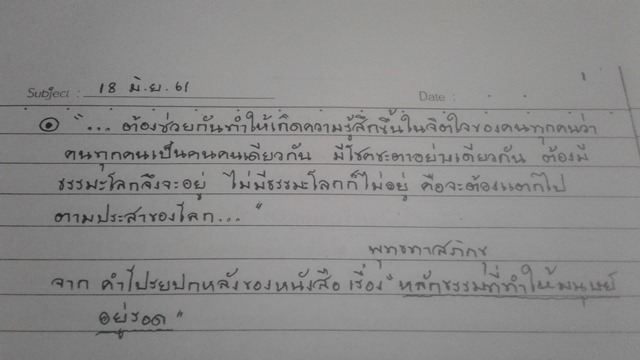 Subject : 18 มิ.ย. 61 Date :
"... ต้องช่วยกันทำให้เกิดความรู้สึกขึ้นในจิตใจของคนทุกคนว่า
คนทุกคนเป็นคนคนเดียวกัน มีโชคชะตาอย่างเดียวกัน ต้องมี
ธรรมะโลกจึงจะอยู่ ไม่มีธรรมะโลกก็ไม่อยู่ คือจะต้องแตกไป
ตามประสาของโลก..."
พุทธทาสภิกขุ
จาก คำโปรยปกหลังของหนังสือ เรื่อง "หลักธรรมที่ทำให้มนุษย์
อยู่รอด"